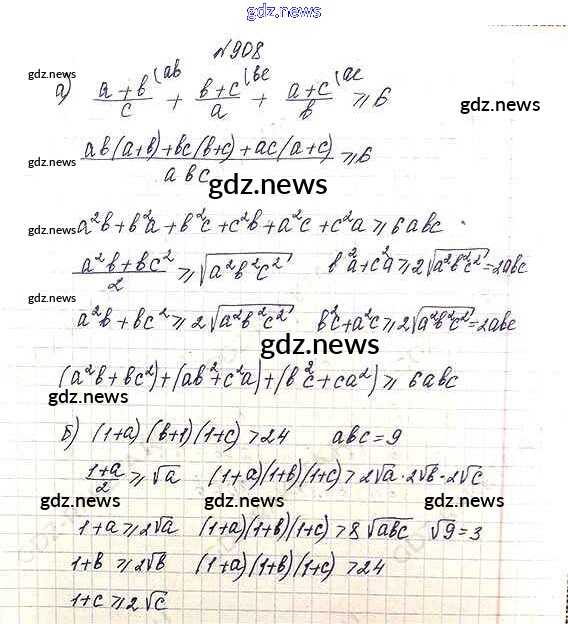 gdz.news
№908
gdz.news
а) (a+b)/c (ab + (b+c)/a (bc + (a+c)/b (ac ≥ 6
gdz.news
(ab(a+b)+bc(b+c)+ac(a+c))/abc ≥ 6
gdz.news
gdz.news
a²b+b²a+b²c+c²b+a²c+c²a ≥ 6abc
(a²b+bc²)/2 ≥ √(a²b²c²) b²a+c²a ≥ 2√(a²b²c²) = 2abc
gdz.news
a²b+bc² ≥ 2√(a²b²c²) b²c+a²c ≥ 2√(a²b²c²) = 2abc
gdz.news
(a²b+bc²)+(ab²+c²a)+(b²c+ca²) ≥ 6abc
gdz.news gdz.news
б) (1+a)(b+1)(1+c) > 24 abc=9
(1+a)/2 ≥ √a (1+a)(1+b)(1+c) > 2√a·2√b·2√c
gdz.news gdz.news gdz.news
1+a ≥ 2√a (1+a)(1+b)(1+c) > 8√abc √9=3
1+b ≥ 2√b (1+a)(1+b)(1+c) > 24
1+c ≥ 2√c